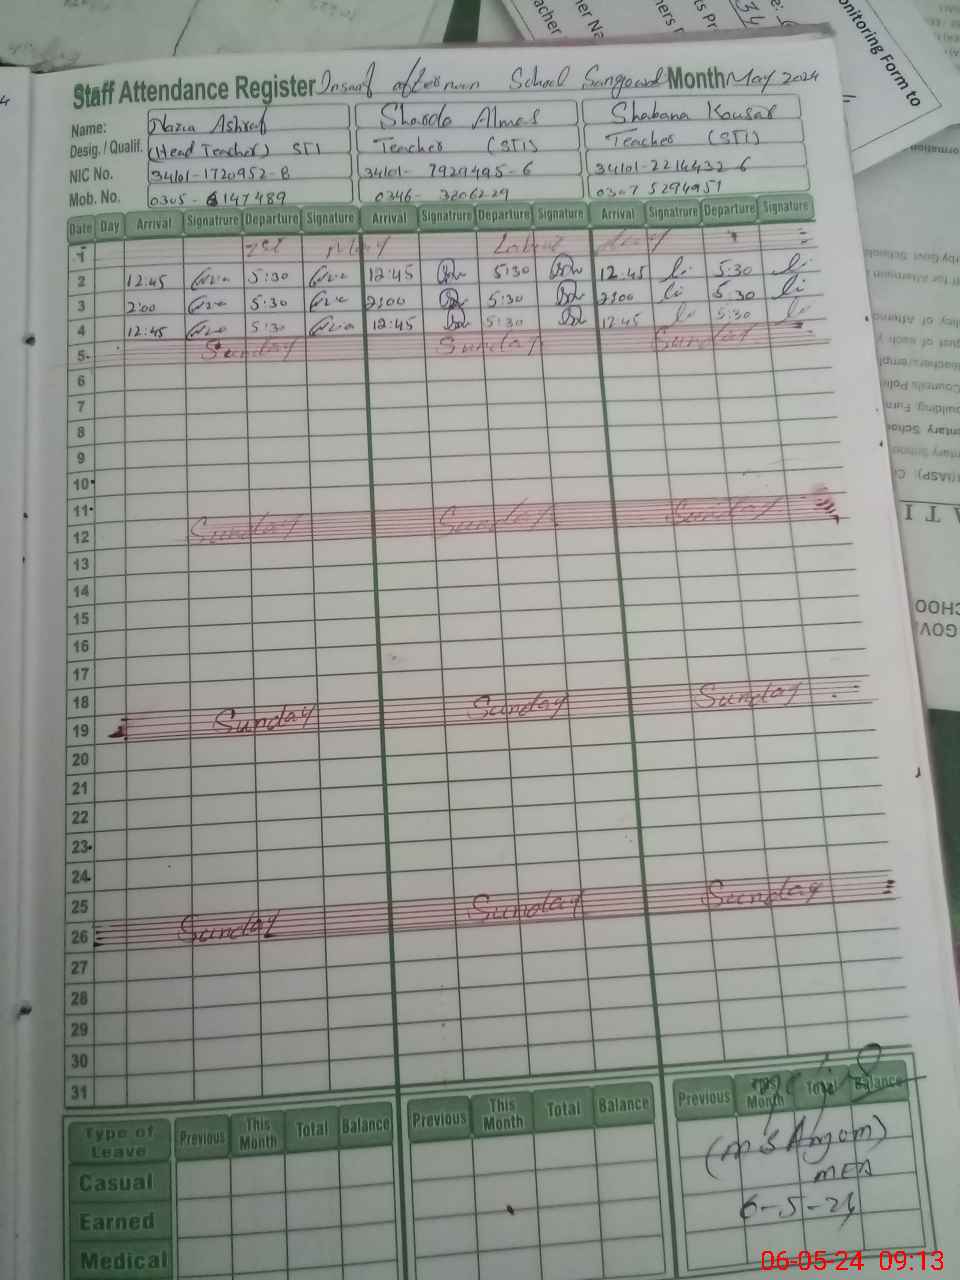 Staff Attendance Register Insaf afternoon School Sangowal Month May 2024
Name: Nazia Ashraf Sharda Almas Shabana Kousar
Desig. / Qualif. (Head Teacher) STI Teacher (STI) Teacher (STI)
NIC No. 34101-1720952-8 34101-7929495-6 34101-2214432-6
Mob. No. 0305-6147489 0346-3206229 0307 5294951
Date Day Arrival Signatrure Departure Signature Arrival Signatrure Departure Signature Arrival Signatrure Departure Signature
1 1st May Labour day
2 12:45 5:30 12:45 5:30 12:45 5:30
3 2:00 5:30 2:00 5:30 2:00 5:30
4 12:45 5:30 12:45 5:30 12:45 5:30
5 Sunday Sunday Sunday
6
7
8
9
10
11
12 Sunday Sunday Sunday
13
14
15
16
17
18
19 Sunday Sunday Sunday
20
21
22
23
24
25
26 Sunday Sunday Sunday
27
28
29
30
31
Type of Leave Previous This Month Total Balance Previous This Month Total Balance Previous This Month Total Balance
Casual
Earned
Medical
(M S Anjom)
MEA
6-5-24
06-05-24 09:13
onitoring Form to